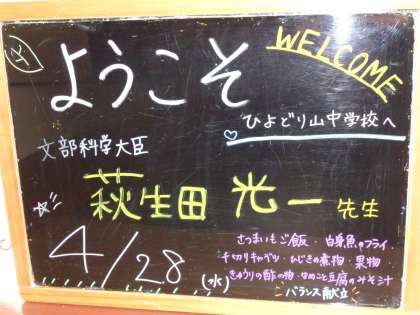 WELCOME
ようこそ
ひよどり山中学校へ
文部科学大臣
萩生田 光一 先生
4/28(水)
さつまいもご飯・白身魚のフライ
千切りキャベツ・ひじきの煮物・果物
きゅうりの酢の物・なめこと豆腐のみそ汁
バランス献立